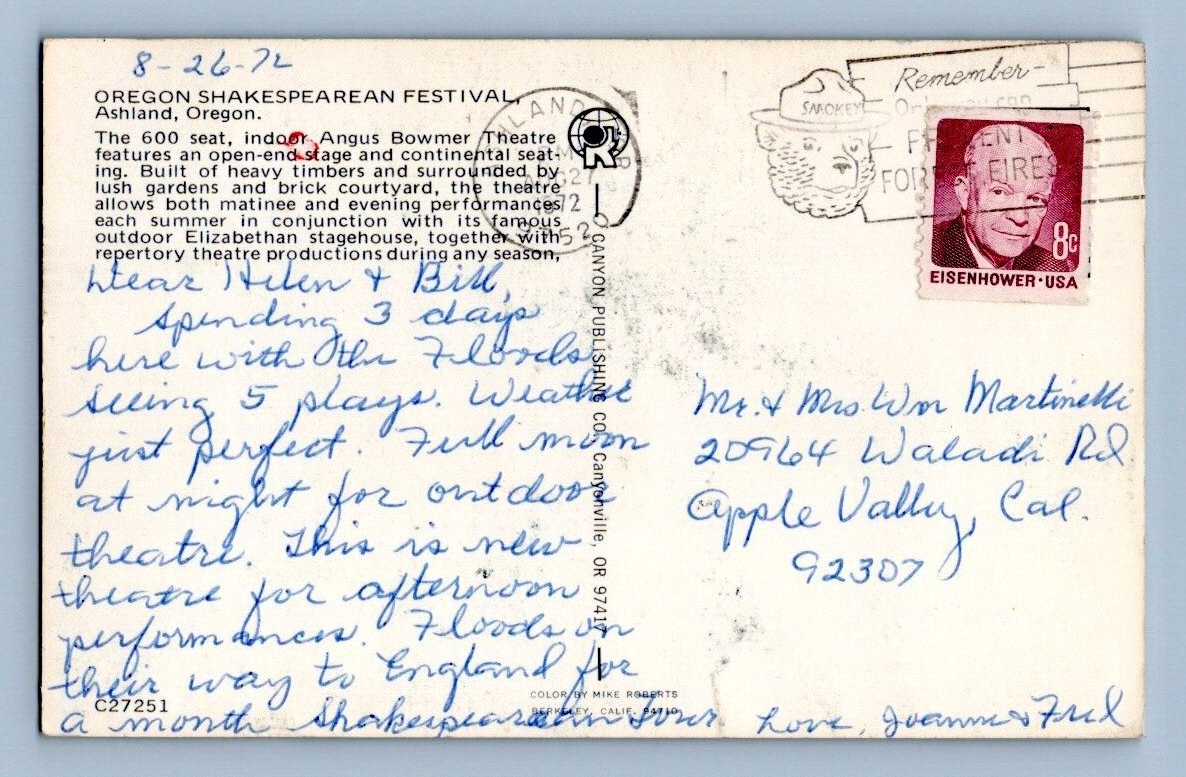 8-26-72
OREGON SHAKESPEAREAN FESTIVAL,
Ashland, Oregon.
The 600 seat, indoor Angus Bowmer Theatre
features an open-end stage and continental seat-
ing. Built of heavy timbers and surrounded by
lush gardens and brick courtyard, the theatre
allows both matinee and evening performances
each summer in conjunction with its famous
outdoor Elizabethan stagehouse, together with
repertory theatre productions during any season,
Dear Helen & Bill,
Spending 3 days
here with the Floods
seeing 5 plays. Weather
just perfect. Full moon
at night for outdoor
theatre. This is new
theatre for afternoon
performances. Floods on
their way to England for
a month Shakespearean tour
Love, Joanne & Fred
C27251
COLOR BY MIKE ROBERTS
BERKELEY, CALIF. 94710
CANYON PUBLISHING CO. Canyonville, OR 97417
R
AUG 27
1972
SMOKEY
Remember-
PREVENT
FOREST FIRES
8c
EISENHOWER·USA
Mr. & Mrs. Wm Martinelli
20964 Waladi Rd
Apple Valley, Cal.
92307